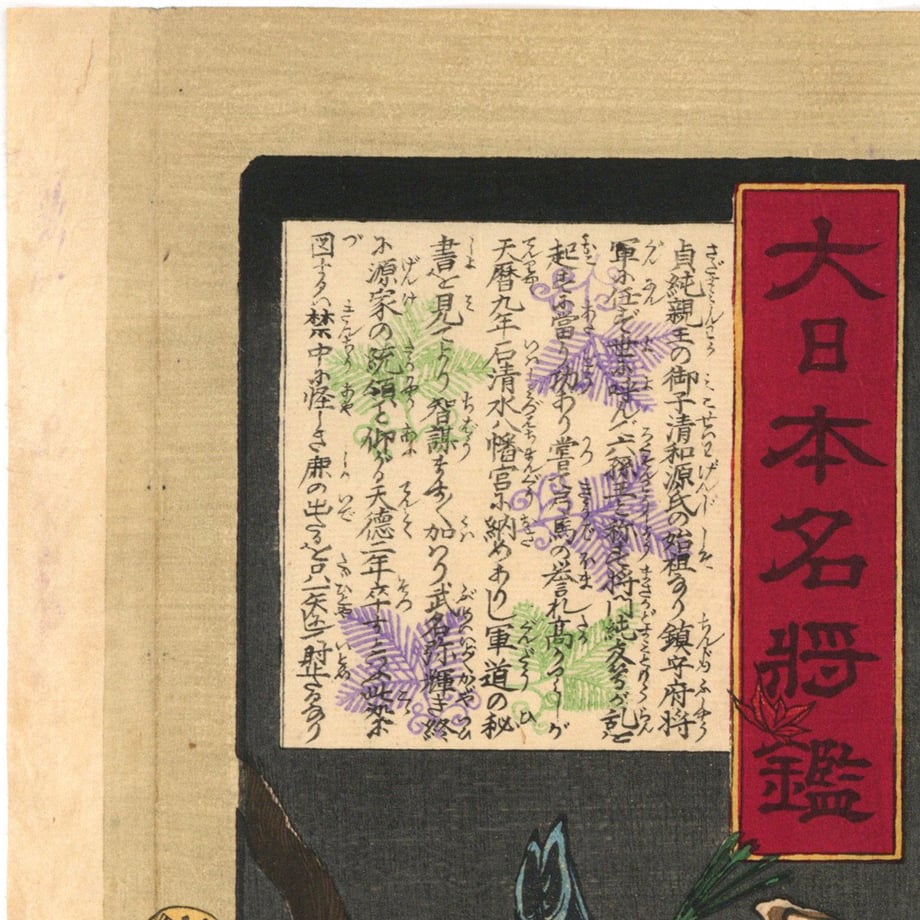 大日本名将鑑
貞純親王の御子清和源氏の始祖なり鎮守府将
軍に任ず世に時めく六孫王と称す将門純友等が乱を
起すに當り功あり嘗て弓馬の誉れ高かりしが
天暦九年石清水八幡宮に納めありし軍道の秘
書を見てより智謀ますます加わり武名弥輝き終
に源家の統領と仰がる天徳二年卒す
図する禁中に怪しき鹿の出たるを只一矢に射止たるなり